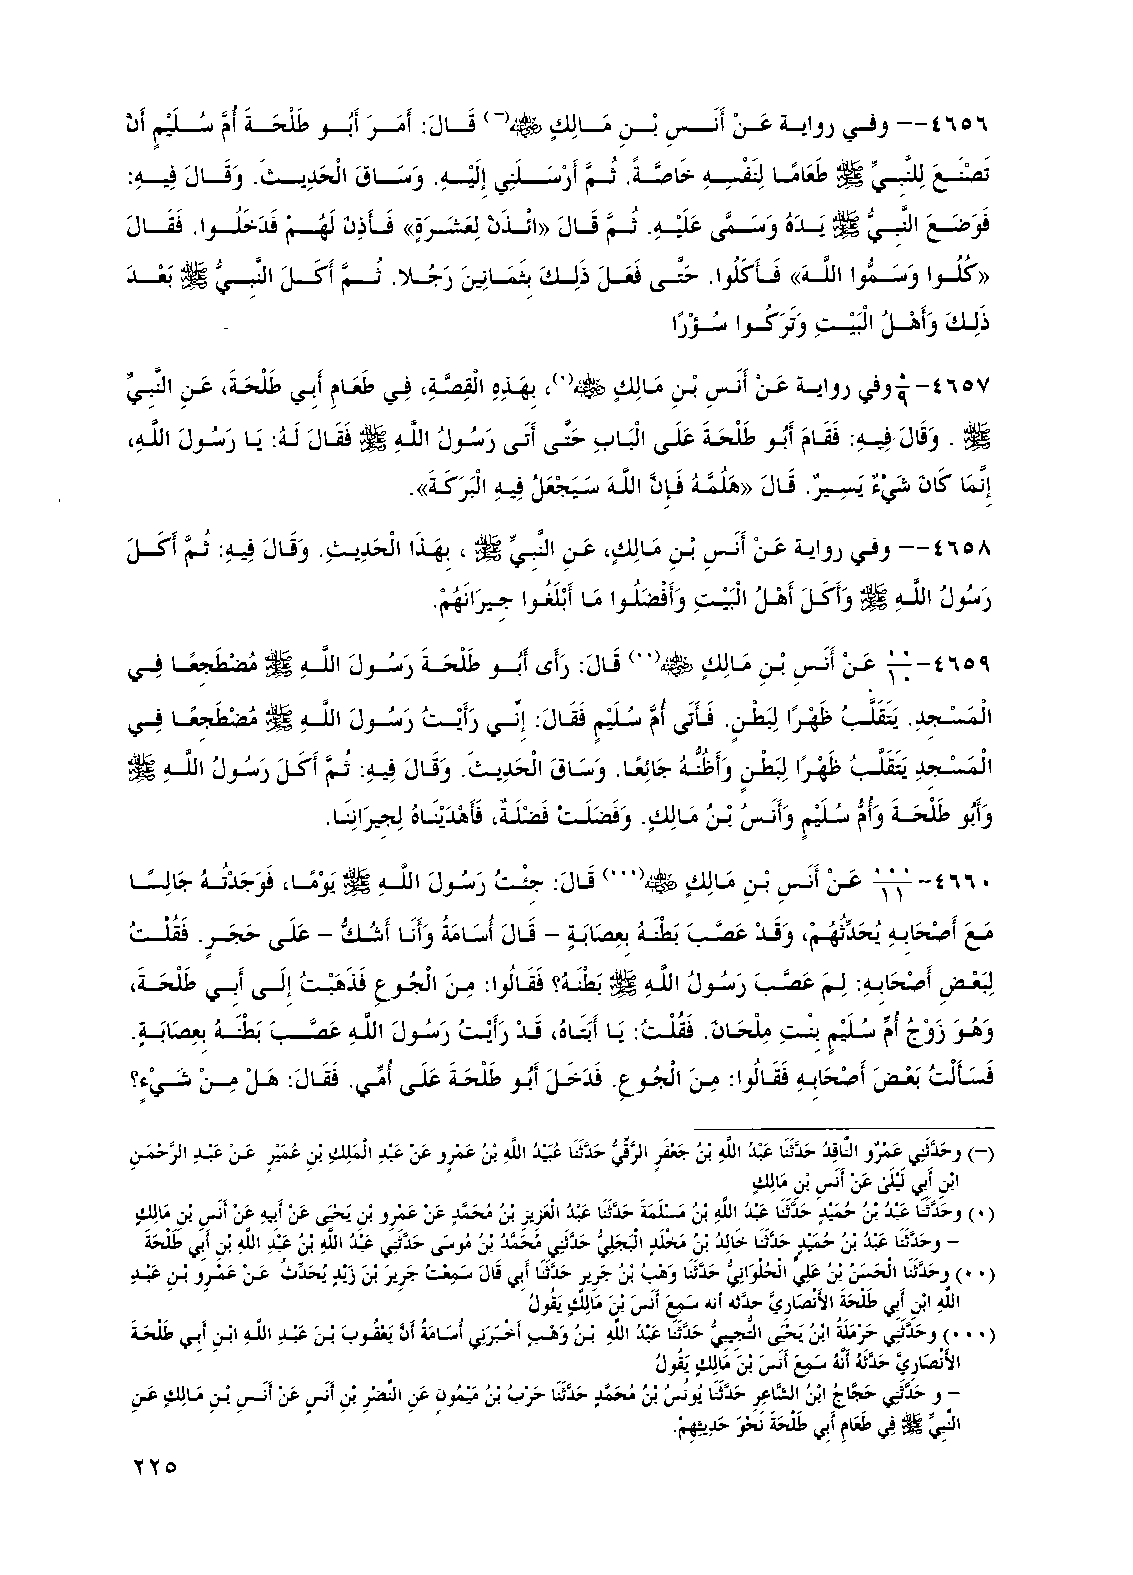 ٤٦٥٦-- وفي رواية عَنْ أَنَسِ بْنِ مَالِكٍ ﵁(-) قَالَ: أَمَرَ أَبُو طَلْحَةَ أُمَّ سُلَيْمٍ أَنْ
تَصْنَعَ لِلنَّبِيِّ ﷺ طَعَامًا لِنَفْسِهِ خَاصَّةً. ثُمَّ أَرْسَلَنِي إِلَيْهِ. وَسَاقَ الْحَدِيثَ. وَقَالَ فِيهِ:
فَوَضَعَ النَّبِيُّ ﷺ يَدَهُ وَسَمَّى عَلَيْهِ. ثُمَّ قَالَ «ائْذَنْ لِعَشَرَةٍ» فَأَذِنَ لَهُمْ فَدَخَلُوا. فَقَالَ
«كُلُوا وَسَمُّوا اللَّهَ» فَأَكَلُوا. حَتَّى فَعَلَ ذَلِكَ بِثَمَانِينَ رَجُلا. ثُمَّ أَكَلَ النَّبِيُّ ﷺ بَعْدَ
ذَلِكَ وَأَهْلُ الْبَيْتِ وَتَرَكُوا سُؤْرًا
٤٦٥٧-<sup>٠</sup>/٩ وفي رواية عَنْ أَنَسِ بْنِ مَالِكٍ ﵁(٠)، بِهَذِهِ الْقِصَّةِ، فِي طَعَامِ أَبِي طَلْحَةَ، عَنِ النَّبِيِّ
ﷺ . وَقَالَ فِيهِ: فَقَامَ أَبُو طَلْحَةَ عَلَى الْبَابِ حَتَّى أَتَى رَسُولُ اللَّهِ ﷺ فَقَالَ لَهُ: يَا رَسُولَ اللَّهِ،
إِنَّمَا كَانَ شَيْءٌ يَسِيرٌ. قَالَ «هَلُمَّهُ فَإِنَّ اللَّهَ سَيَجْعَلُ فِيهِ الْبَرَكَةَ».
٤٦٥٨-- وفي رواية عَنْ أَنَسِ بْنِ مَالِكٍ، عَنِ النَّبِيِّ ﷺ ، بِهَذَا الْحَدِيثِ. وَقَالَ فِيهِ: ثُمَّ أَكَلَ
رَسُولُ اللَّهِ ﷺ وَأَكَلَ أَهْلُ الْبَيْتِ وَأَفْضَلُوا مَا أَبْلَغُوا جِيرَانَهُمْ.
٤٦٥٩-<sup>٠٠</sup>/١٠ عَنْ أَنَسِ بْنِ مَالِكٍ ﵁(٠٠) قَالَ: رَأَى أَبُو طَلْحَةَ رَسُولَ اللَّهِ ﷺ مُضْطَجِعًا فِي
الْمَسْجِدِ. يَتَقَلَّبُ ظَهْرًا لِبَطْنٍ. فَأَتَى أُمَّ سُلَيْمٍ فَقَالَ: إِنِّي رَأَيْتُ رَسُولَ اللَّهِ ﷺ مُضْطَجِعًا فِي
الْمَسْجِدِ يَتَقَلَّبُ ظَهْرًا لِبَطْنٍ وَأَظُنُّهُ جَائِعًا. وَسَاقَ الْحَدِيثَ. وَقَالَ فِيهِ: ثُمَّ أَكَلَ رَسُولُ اللَّهِ ﷺ
وَأَبُو طَلْحَةَ وَأُمُّ سُلَيْمٍ وَأَنَسُ بْنُ مَالِكٍ. وَفَضَلَتْ فَضْلَةٌ، فَأَهْدَيْنَاهُ لِجِيرَانِنَا.
٤٦٦٠-<sup>٠٠٠</sup>/١١ عَنْ أَنَسِ بْنِ مَالِكٍ ﵁(٠٠٠) قَالَ: جِئْتُ رَسُولَ اللَّهِ ﷺ يَوْمًا، فَوَجَدْتُهُ جَالِسًا
مَعَ أَصْحَابِهِ يُحَدِّثُهُمْ، وَقَدْ عَصَّبَ بَطْنَهُ بِعِصَابَةٍ – قَالَ أُسَامَةُ وَأَنَا أَشُكُّ – عَلَى حَجَرٍ. فَقُلْتُ
لِبَعْضِ أَصْحَابِهِ: لِمَ عَصَّبَ رَسُولُ اللَّهِ ﷺ بَطْنَهُ؟ فَقَالُوا: مِنَ الْجُوعِ فَذَهَبْتُ إِلَى أَبِي طَلْحَةَ،
وَهُوَ زَوْجُ أُمِّ سُلَيْمٍ بِنْتِ مِلْحَانَ. فَقُلْتُ: يَا أَبَتَاهُ، قَدْ رَأَيْتُ رَسُولَ اللَّهِ عَصَّبَ بَطْنَهُ بِعِصَابَةٍ.
فَسَأَلْتُ بَعْضَ أَصْحَابِهِ فَقَالُوا: مِنَ الْجُوعِ. فَدَخَلَ أَبُو طَلْحَةَ عَلَى أُمِّي. فَقَالَ: هَلْ مِنْ شَيْءٍ؟
(-) وحَدَّثَنِي عَمْرٌو النَّاقِدُ حَدَّثَنَا عَبْدُ اللَّهِ بْنُ جَعْفَرٍ الرَّقِّيُّ حَدَّثَنَا عُبَيْدُ اللَّهِ بْنُ عَمْرٍو عَنْ عَبْدِ الْمَلِكِ بْنِ عُمَيْرٍ عَنْ عَبْدِ الرَّحْمَنِ
ابْنِ أَبِي لَيْلَى عَنْ أَنَسِ بْنِ مَالِكٍ
(٠) وحَدَّثَنَا عَبْدُ بْنُ حُمَيْدٍ حَدَّثَنَا عَبْدُ اللَّهِ بْنُ مَسْلَمَةَ حَدَّثَنَا عَبْدُ الْعَزِيزِ بْنُ مُحَمَّدٍ عَنْ عَمْرِو بْنِ يَحْيَى عَنْ أَبِيهِ عَنْ أَنَسِ بْنِ مَالِكٍ
– وحَدَّثَنَا عَبْدُ بْنُ حُمَيْدٍ حَدَّثَنَا خَالِدُ بْنُ مَخْلَدٍ الْبَجَلِيُّ حَدَّثَنِي مُحَمَّدُ بْنُ مُوسَى حَدَّثَنِي عَبْدُ اللَّهِ بْنُ عَبْدِ اللَّهِ بْنِ أَبِي طَلْحَةَ
(٠٠) وحَدَّثَنَا الْحَسَنُ بْنُ عَلِيٍّ الْحُلْوَانِيُّ حَدَّثَنَا وَهْبُ بْنُ جَرِيرٍ حَدَّثَنَا أَبِي قَالَ سَمِعْتُ جَرِيرَ بْنَ زَيْدٍ يُحَدِّثُ عَنْ عَمْرِو بْنِ عَبْدِ
اللَّهِ ابْنِ أَبِي طَلْحَةَ الأَنْصَارِيَّ حدثه أنه سَمِعَ أَنَسَ بْنَ مَالِكٍ يَقُولُ
(٠٠٠) وحَدَّثَنِي حَرْمَلَةُ ابْنُ يَحْيَى التُّجِيبِيُّ حَدَّثَنَا عَبْدُ اللَّهِ بْنُ وَهْبٍ أَخْبَرَنِي أُسَامَةُ أَنَّ يَعْقُوبَ بْنَ عَبْدِ اللَّهِ ابْنِ أَبِي طَلْحَةَ
الأَنْصَارِيَّ حَدَّثَهُ أَنَّهُ سَمِعَ أَنَسَ بْنَ مَالِكٍ يَقُولُ
– و حَدَّثَنِي حَجَّاجُ ابْنُ الشَّاعِرِ حَدَّثَنَا يُونُسُ بْنُ مُحَمَّدٍ حَدَّثَنَا حَرْبُ بْنُ مَيْمُونٍ عَنِ النَّضْرِ بْنِ أَنَسٍ عَنْ أَنَسِ بْنِ مَالِكٍ عَنِ
النَّبِيِّ ﷺ فِي طَعَامِ أَبِي طَلْحَةَ نَحْوَ حَدِيثِهِمْ.
٢٢٥